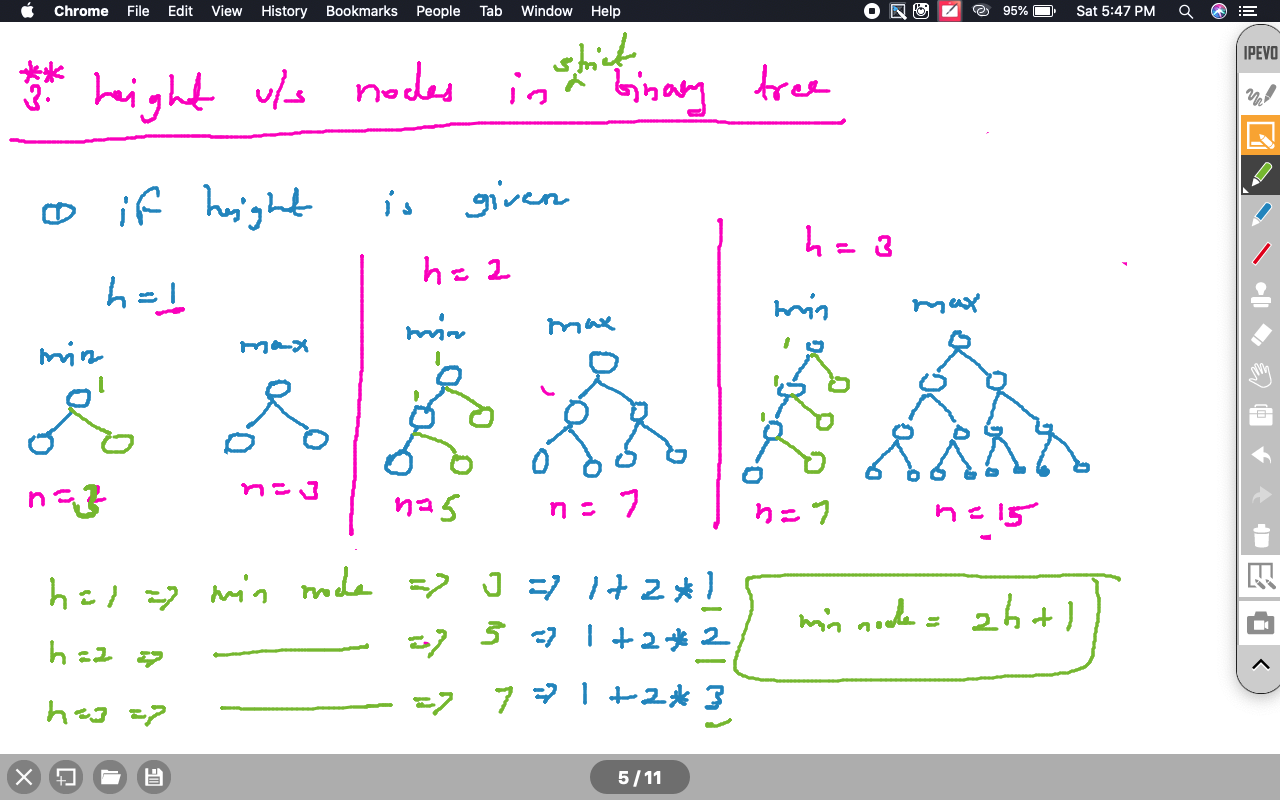 Chrome File Edit View History Bookmarks People Tab Window Help 95% Sat 5:47 PM
IPEVO
** 3. height v/s nodes in strict binary tree
① if height is given
h = 1
min max
1
n = 3 n = 3
h = 2
min max
1
1
n = 5 n = 7
h = 3
min max
1
1
1
n = 7 n = 15
h = 1 => min node => 3 => 1 + 2 * 1
h = 2 => => 5 => 1 + 2 * 2
h = 3 => => 7 => 1 + 2 * 3
min node = 2h + 1
5 / 11